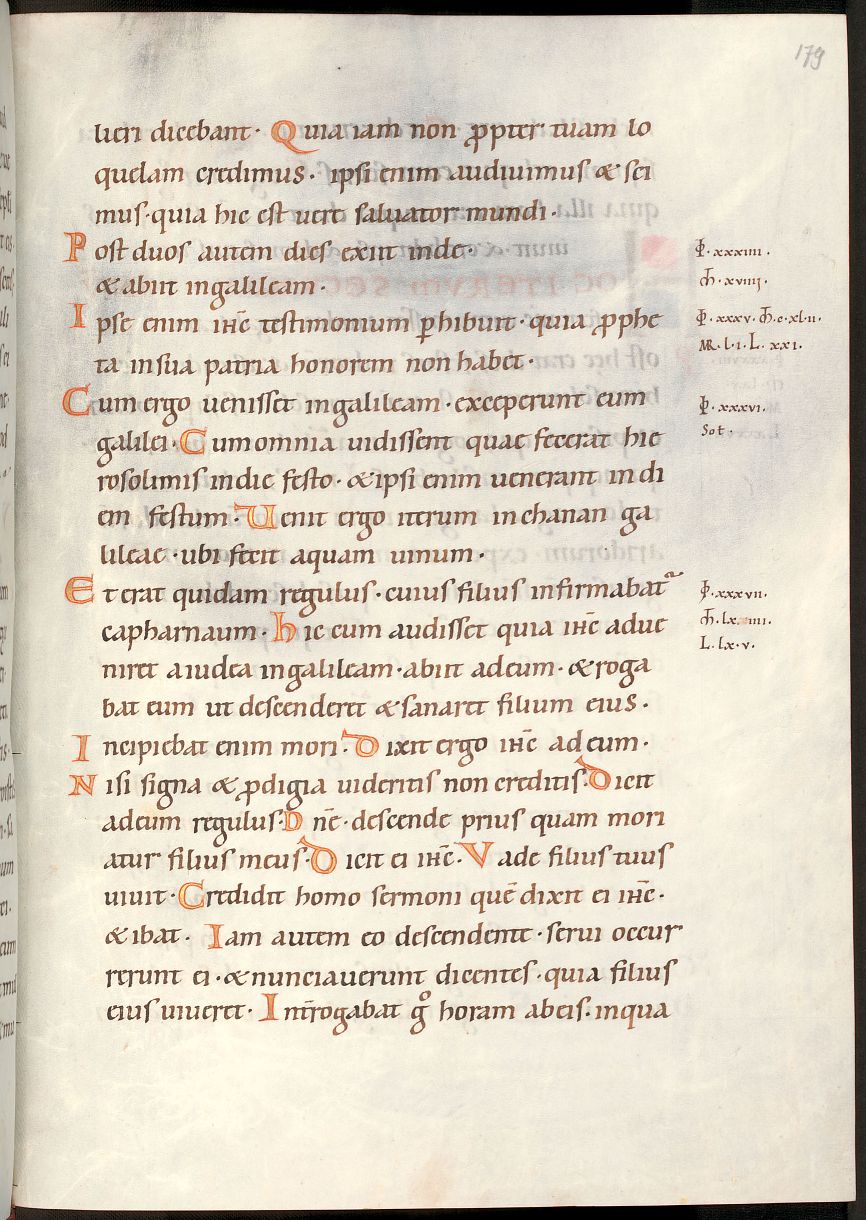 179
lieri dicebant· Quia iam non ꝓpter tuam lo
quelam credimus· ipsi enim audiuimus & sci
mus·quia hic est uere saluator mundi·
Post duos autem dies exiit inde·
& abiit ingalileam·
Ipse enim ihc̄ testimonium ꝑhibuit·quia ꝓphe
ta insua patria honorem non habet·
Cum ergo uenisset ingalileam·exceperunt eum
galilei·Cumomnia uidissent quae fecerat hie
rosolimis indie festo·&ipsi enim uenerant indi
em festum·Uenit ergo iterum inchanan ga
lileae·ubi fecit aquam uinum·
Et erat quidam regulus·cuius filius infirmabat᷑
capharnaum·hic cum audisset quia ihc̄ adue
niret aiudea ingalileam·abiit adeum·&roga
bat eum ut descenderet &sanaret filium eius·
Incipiebat enim mori·Dixit ergo ihc̄ adeum·
Nisi signa & ꝓdigia uideritis non creditis·Dicit
adeum regulus·Dnē·descende prius quam mori
atur filius meus·Dicit ei ihc̄·Vade filius tuus
uiuit·Credidit homo sermoni quē dixit ei ihc̄·
&ibat· Iam autem eo descendente·serui occur
rerunt ei·&nunciauerunt dicentes·quia filius
eius uiueret·Int̄rogabat gͦ horam abeis·inqua
·xxxiiii·
·xviiii·
·xxxv· ·c·xl·ii·
MR·l·i·L·xxi·
·xxxvi·
Sol·
·xxxvii·
L·lx·v·